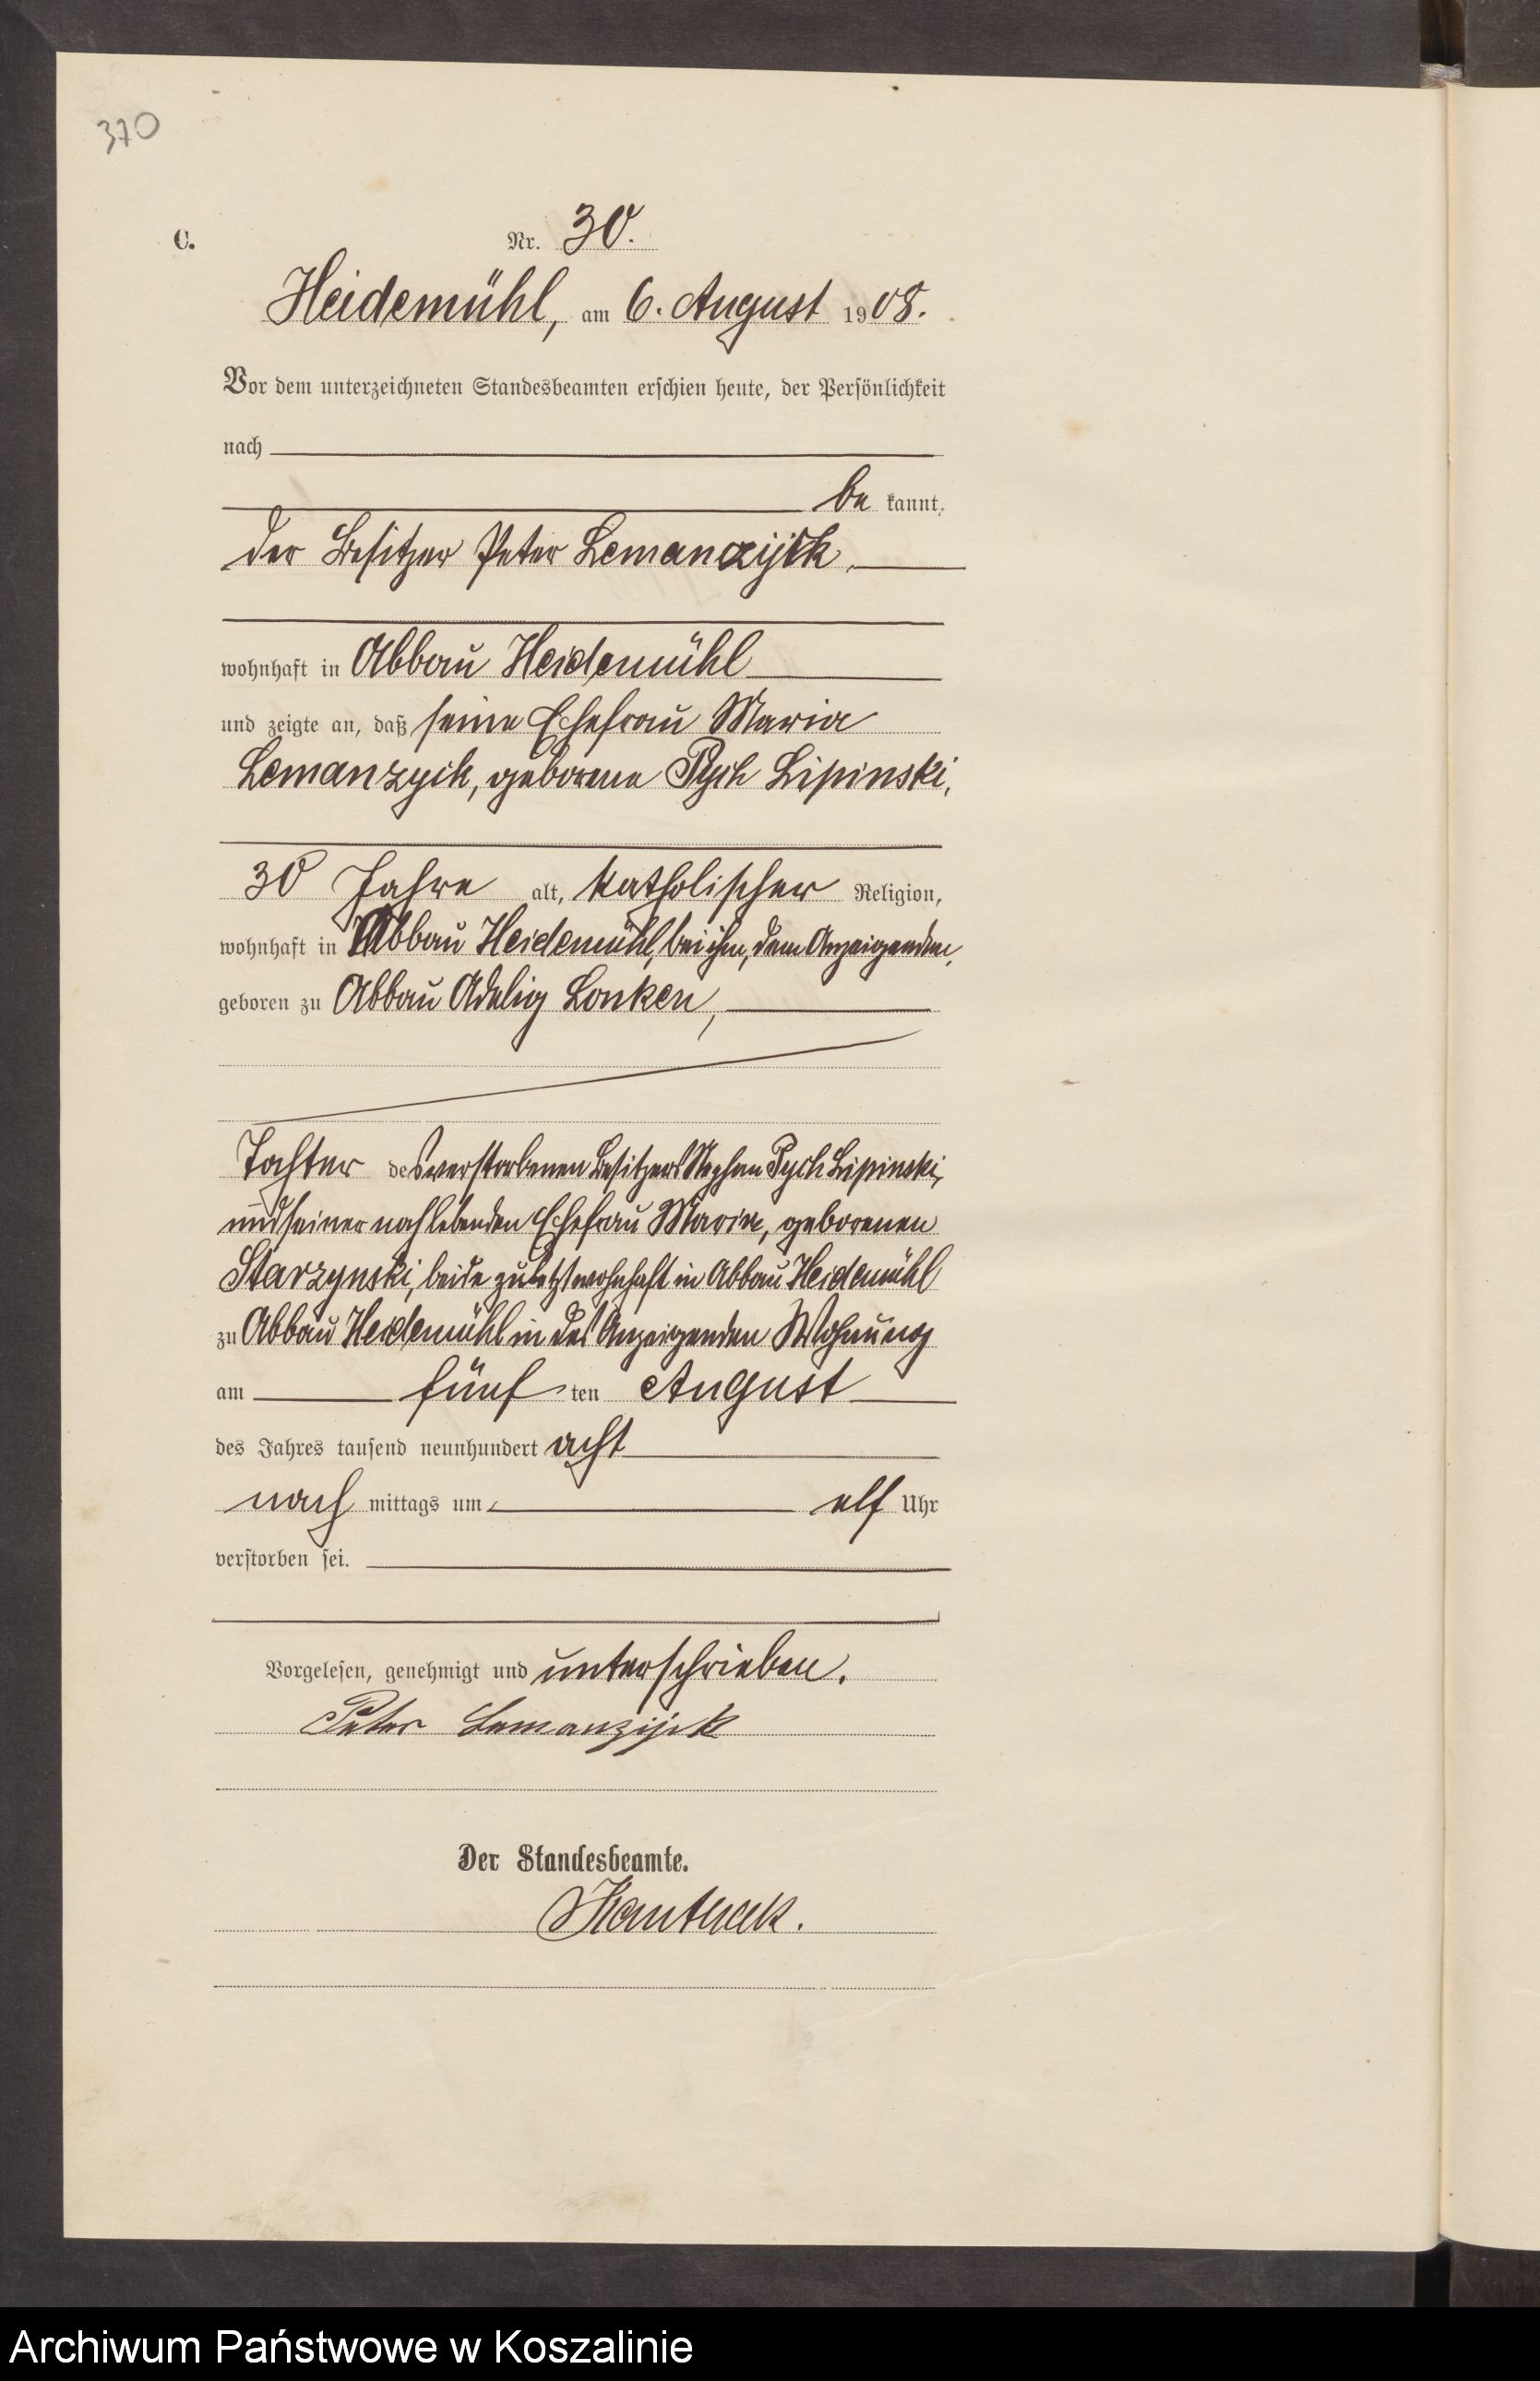 370
C.
Nr. 30.
Heidemühl, am 6. August 1908.
Vor dem unterzeichneten Standesbeamten erschien heute, der Persönlichkeit
nach
be kannt,
der Besitzer Peter Lemanczijk,
wohnhaft in Abbau Heidemühl
und zeigte an, daß seine Ehefrau Maria
Lemanzyik, geborene Pych Lipinski,
30 Jahre alt, katholischer Religion,
wohnhaft in Abbau Heidemühl, bei ihm, dem Anzeigenden,
geboren zu Abbau Adelig Lonken,
Tochter des verstorbenen Besitzers Stephan Pych Lipinski,
und seiner noch lebenden Ehefrau Maria, geborenen
Starzynski, beide zuletzt wohnhaft in Abbau Heidemühl
zu Abbau Heidemühl in des Anzeigenden Wohnung
am fünf ten August
des Jahres tausend neunhundert acht
nach mittags um elf Uhr
verstorben sei.
Vorgelesen, genehmigt und unterschrieben.
Peter Lemanzijck
Der Standesbeamte.
Archiwum Państwowe w Koszalinie